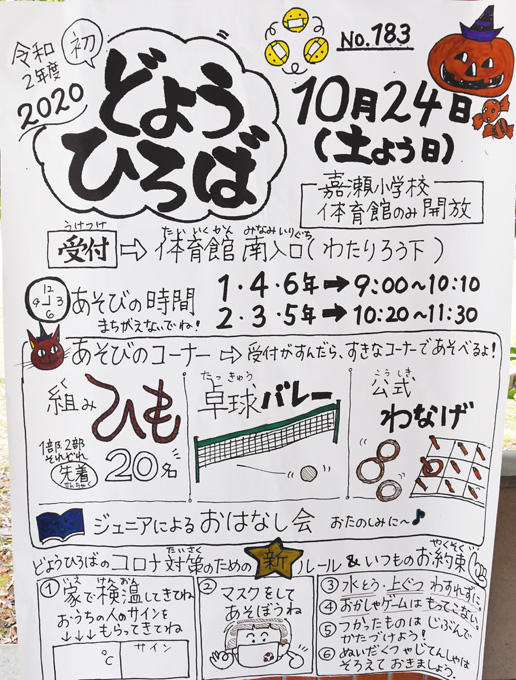 令和
2年度
2020
初
どよう
ひろば
No.183
10月24日
(土よう日)
嘉瀬小学校
体育館のみ開放
うけつけ
受付 ⇨ 体育館 南入口(わたりろう下)
たいいくかん みなみいりぐち
12
9 3
6
あそびの時間
まちがえないでね!
1・4・6年➡9:00~10:10
2・3・5年➡10:20~11:30
あそびのコーナー ⇨ 受付がすんだら、すきなコーナーであそべるよ!
組みひも
1部、2部
それぞれ
先着
せんちゃく
20名
たっきゅう
卓球バレー
こうしき
公式
わなげ
ジュニアによる おはなし会 おたのしみに~♪
どようひろばのコロナ対策のための 新 ルール & いつものお約束
たいさく
やくそく
① 家で検温してきてね
いえ けんおん
おうちの人のサインを
↓↓↓もらってきてね
℃
サイン
② マスクをして
あそぼうね
③ 水とう・上ぐつ わすれずに
④ おかしやゲームは もってこない
⑤ つかったものは じぶんで
かたづけよう!
⑥ ぬいだくつやじてんしゃは
そろえて おきましょう。